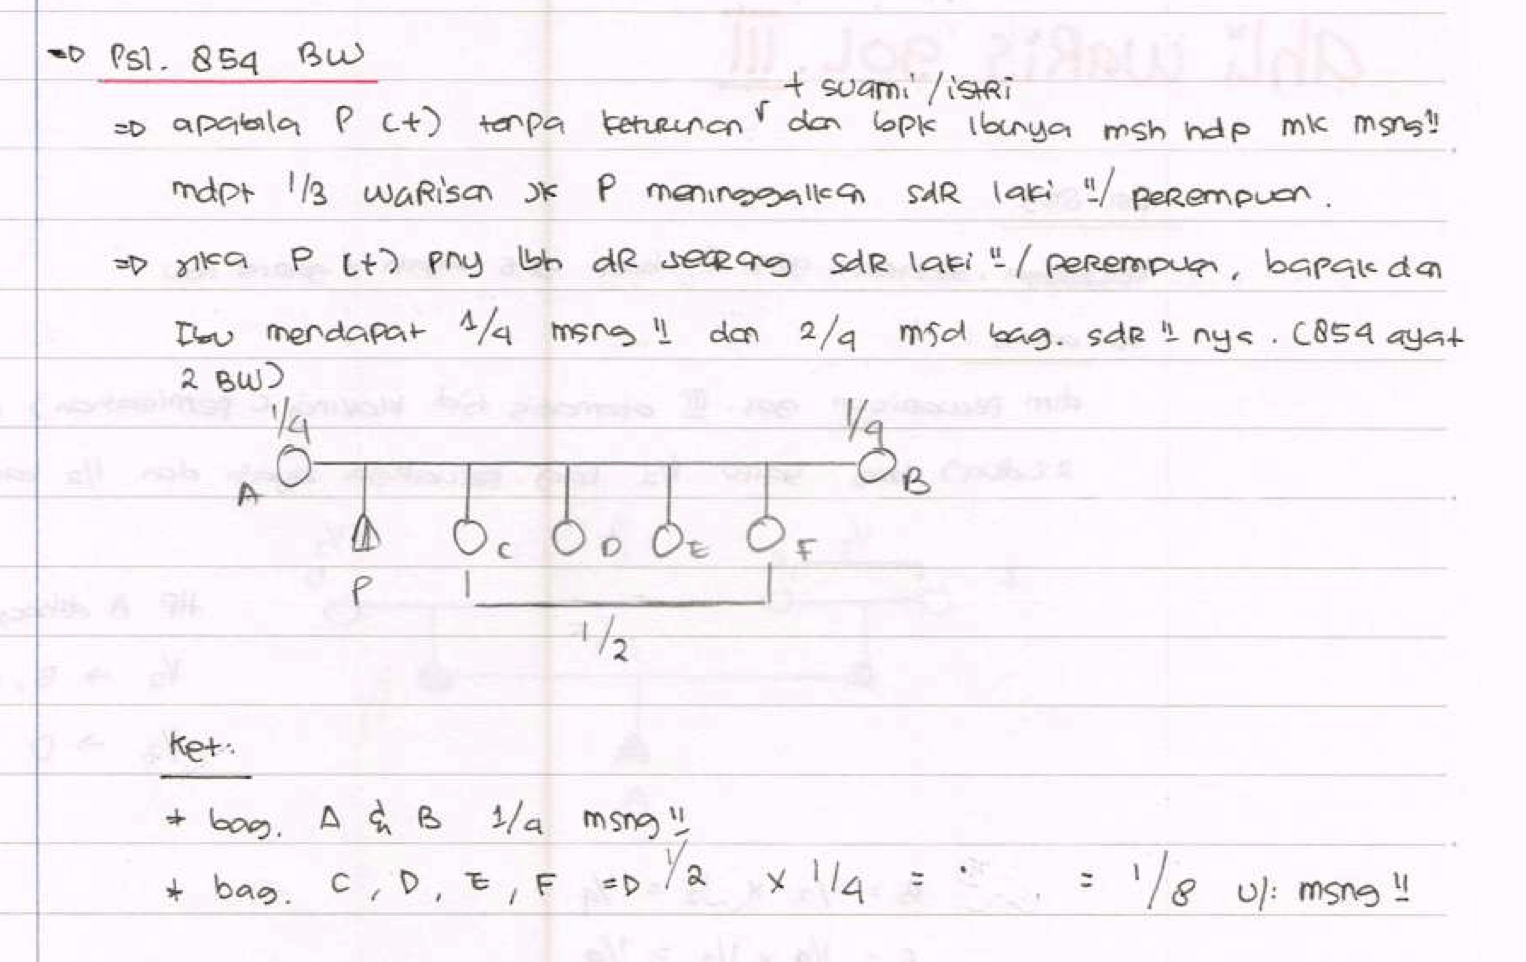 =D Psl. 854 BW
+ suami / istri
=D apabila P (+) tanpa keturunan √ dan bpk ibunya msh hdp mk msng"
mdpt 1/3 waRisan jk P meninggalkan sdR laki"/perempuan.
=D jika P (+) pny lbh dR seorang sdR laki"/perempuan, bapak dan
Ibu mendapat 1/4 msng" dan 2/4 mjd bag. sdR" nya. (854 ayat
2 BW)
1/4 1/4
A B
C D E F
P
1/2
Ket:
* bag. A & B 1/4 msng"
* bag. C, D, E, F =D 1/2 x 1/4 = = 1/8 u/: msng"